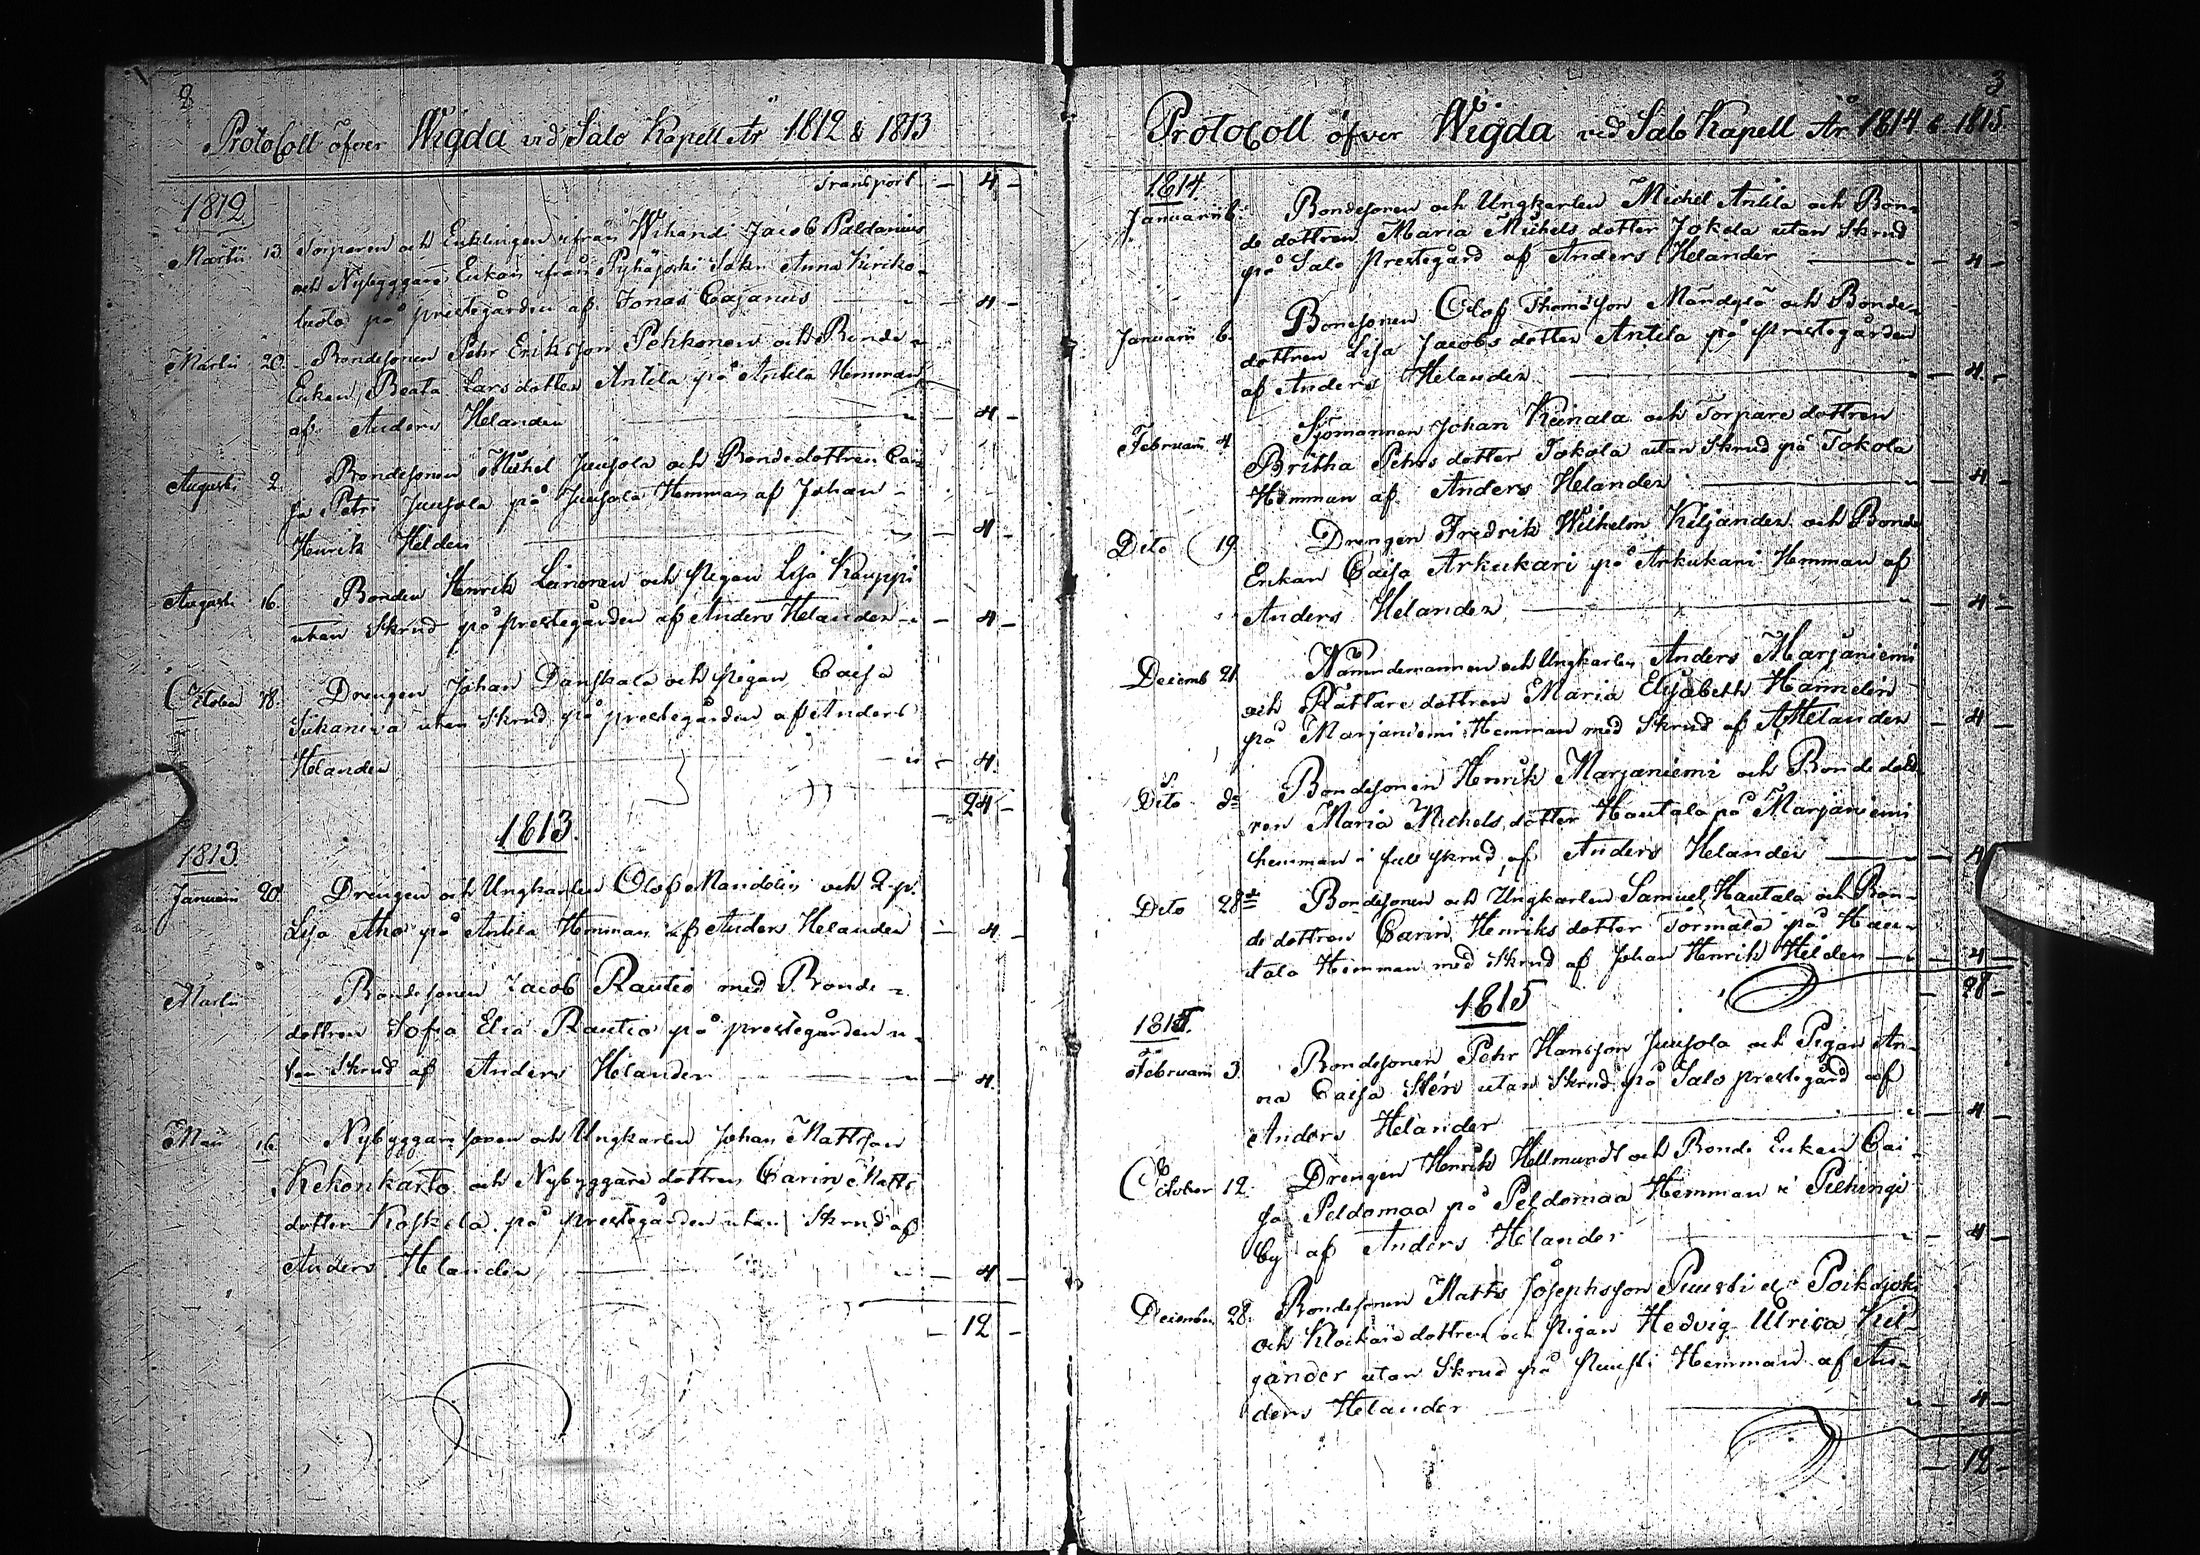 2
Protocoll öfver Wigda vid Salo Kapell År 1812 & 1813
Transport – 4 –
1812
Martii 13. Torparen och Enklingen ifrån Wihandi Jacob Paldanius
och Nybyggare Enkan ifrån Pyhäjocki Sokn Anna Kiriko-
luoto på prestegården af Jonas Cajanus – 4 –
Martii 20. Bondesonen Pehr Eriksson Pehkonen och Bonde
Enkan Beata Larsdotter Antila på Antila Hemman
af Anders Helander – 4 –
Augusti 2. Bondesonen Michel Juusola och Bondedottren Cai-
sa Petri Juusola på Juusola Hemman af Johan
Henrik Helden – 4 –
Augusti 16. Bonden Henrik Leinonen och Pigan Lisa Kauppi
utan Skrud på prestegården af Anders Helander – 4 –
October 18. Drengen Johan Danskala och Pigan Caisa
Siikaneva utan Skrud på prestegården af Anders
Helander – 4.
– 24 –
1813.
1813
Januarii 20. Drengen och Ungkarlen Olof Mandelin och Q. p.
Lisa Aho på Antila Hemman af Anders Helander – 4 –
Martii Bondesonen Jacob Rautio med Bonde-
dottren Sofia Elia Rautio på prestegården u-
tan Skrud af Anders Helander – 4.
Maii 16. Nybyggare sonen och Ungkarlen Johan Mattsson
Kekonkarto och Nybyggare dottren Carin Matts
dotter Koskela på prestegården utan Skrud af
Anders Helander – 4 –
– 12 –
3
Protocoll öfver Wigda vid Salo Kapell År 1814 & 1815.
1814
Januarii 6. Bondesonen och Ungkarlen Michel Antila och Bon-
de dottren Maria Michels dotter Jokela utan Skrud
på Salo Prestegård af Anders Helander – 4 –
Januarii 6. Bondesonen Olof Thomasson och Bonde-
dottren Lisa Jacobs dotter Antila på Prestegården
af Anders Helander – 4 –
Februarii 4. Sjömannen Johan Keinala och Torpare dottren
Britha Pehrs dotter Tokola utan Skrud på Tokola
Hemman af Anders Helander – 4 –
Dito 19. Drengen Fredrik Wilhelm Kiljander och Bonde
Enkan Caisa Arkukari på Arkukari Hemman af
Anders Helander – 4 –
Decemb 21. Nämndemannen och Ungkarlen Anders Marjaniemi
och Rättare dottren Maria Elisabeth Hannelin
på Marjaniemi Hemman med Skrud af A Helander – 4 –
Dito do Bondesonen Henrik Marjaniemi och Bonde dott-
ren Maria Michels dotter Hautala på Marjaniemi
hemman i full skrud af Anders Helander – 4
Dito 28de Bondesonen och Ungkarlen Samuel Hautala och Bon-
de dottren Carin Henriks dotter Törmälä på Hau-
tala Hemman med Skrud af Johan Henrik Helden – 4 –
– 28 –
1815
1815.
Februarii 3. Bondesonen Pehr Hansson Juusola och Pigan An-
na Caisa Stén utan Skrud på Salo prestegård af
Anders Helander – 4 –
October 12. Drengen Henrik Hellmundt och Bonde Enkan Cai-
sa Peldomaa på Peldomaa Hemman i Piehingi
by af Anders Helander – 4 –
December 28. Bondesonen Matts Josephsson Puusti
och Klockare dottren och Pigan Hedvig Ulrica Kil-
jander utan Skrud på Puusti Hemman af An-
ders Helander – 4 –
– 12 –